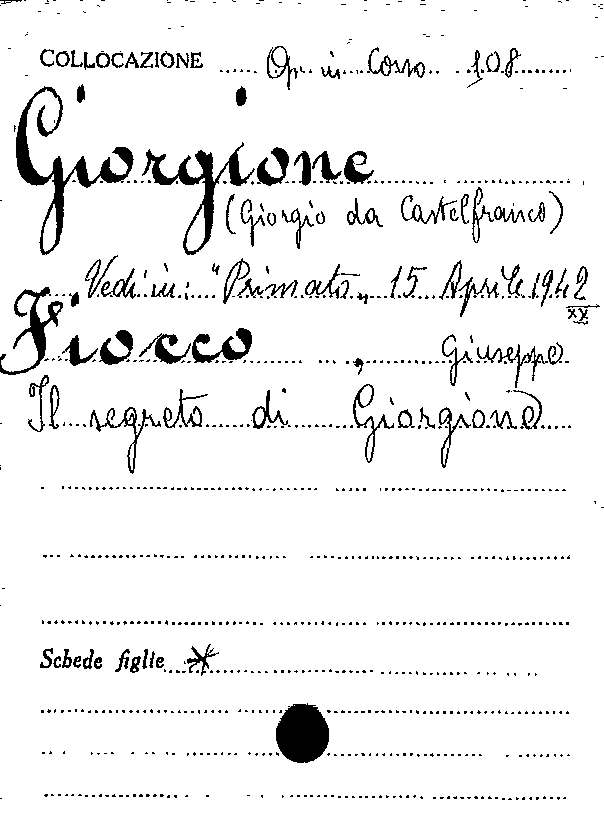 COLLOCAZIONE Op in Corso 108
Giorgione
(Giorgio da Castelfranco)
Vedi in: "Primato„ 15 Aprile 1942
XX
Fiocco , Giuseppe
Il segreto di Giorgione
Schede figlie